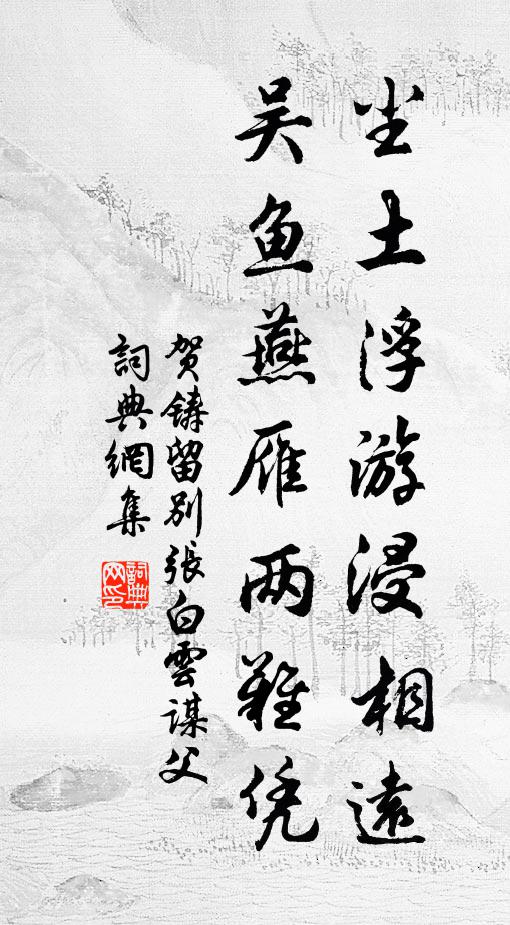 尘土浮游浸相远
吴鱼燕雁两难凭
贺铸留别張白雲謀父
詞典網集
詞典网印